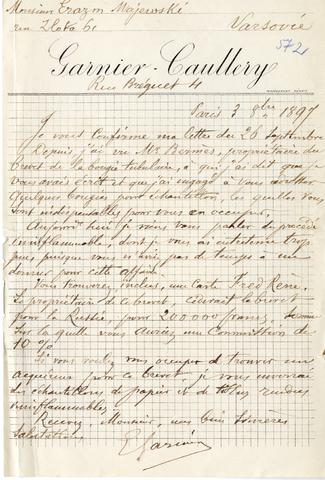 Monsieur Erazm Majewski
rue Zlota 61 Varsovie
572
Garnier-Caullery
Rue Bréguet 4
Paris 3 8bre 1897
Je vous confirme ma lettre du 26 Septembre
Depuis j'ai vu Mr Bermes, propriétaire du
brevet de la bougie tubulaire, à qui j'ai dit que je
vous avais écrit et que j'ai engagé à vous
quelques bougies pour échantillon, les quelles vous
sont indispensables pour vous en occuper.
Aujourd'hui je vous vous parler du procédé
ininflammable, dont je vous ai entretenu trop
peu puisque vous n'aviez pas de temps à me
donner pour cette affaire.
Vous trouverez, inclus, une carte Fred René,
le propriétaire de ce brevet, le brevet
pour la Russie, pour 200000 francs, somme
sur la quelle vous auriez une Commission de
10 %.
Si vous voulez vous occuper de trouver un
acquéreur pour ce brevet je vous enverrai
des échantillons de papier et de rendus
ininflammables.
Recevez, Monsieur, mes bien sincères
salutations
E Garnier